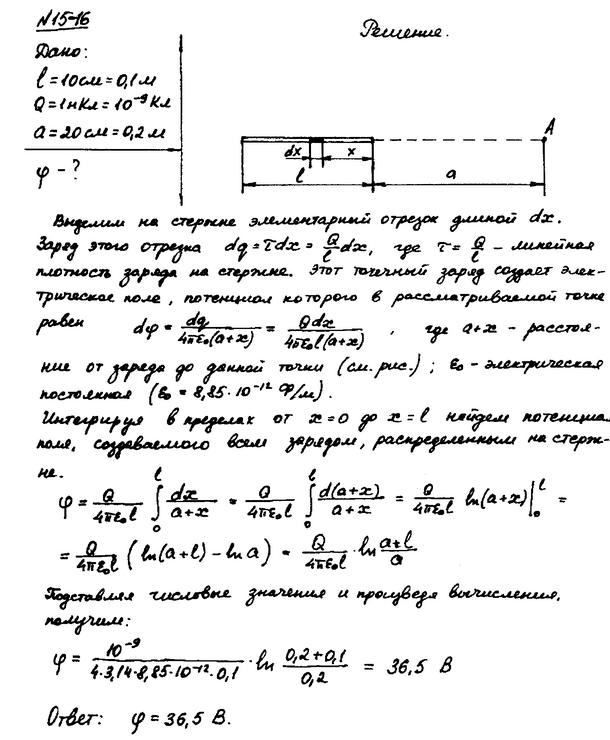 №15-16
Решение.
Дано:
l = 10см = 0,1м
Q = 1нКл = 10⁻⁹Кл
a = 20см = 0,2м
φ - ?
A
dx x
l a
Выделим на стержне элементарный отрезок длиной dx.
Заряд этого отрезка dq = τdx = Q/l dx, где τ = Q/l - линейная
плотность заряда на стержне. Этот точечный заряд создает элек-
трическое поле, потенциал которого в рассматриваемой точке
равен dφ = dq/4πε₀(a+x) = Qdx/4πε₀l(a+x), где a+x - расстоя-
ние от заряда до данной точки (см. рис.); ε₀ - электрическая
постоянная (ε₀ = 8,85·10⁻¹² Ф/м).
Интегрируя в пределах от x=0 до x=l найдем потенциал
поля, создаваемого всем зарядом, распределенным на стерж-
не.
φ = Q/4πε₀l ∫₀ˡ dx/a+x = Q/4πε₀l ∫₀ˡ d(a+x)/a+x = Q/4πε₀l ln(a+x)|₀ˡ =
= Q/4πε₀l (ln(a+l) - ln a) = Q/4πε₀l · ln a+l/a
Подставляя числовые значения и произведя вычисления,
получим:
φ = 10⁻⁹/4·3,14·8,85·10⁻¹²·0,1 · ln 0,2+0,1/0,2 = 36,5 В
Ответ: φ = 36,5 В.